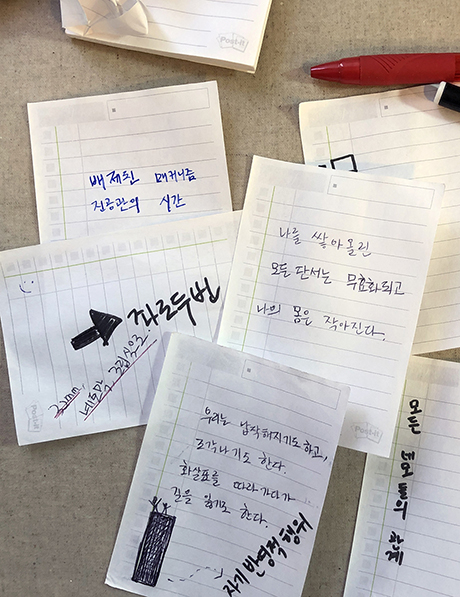 Post-it
배제된 매커니즘
진공관의 시간
나를 쌓아올린
모든 단서는 무효화되고
나의 몸은 작아진다.
좌로두번
22mm,
네모만, 조립식으로
Post-it
우리는 납작해지기도하고,
조각나기도 한다.
화살표를 따라가다가
길을 잃기도 한다.
자기반영적 행위
모든 네모들의 한계